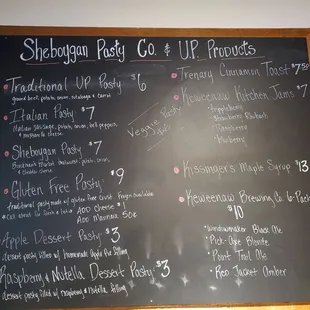 Sheboygan Pasty Co. & U.P. Products
Traditional UP Pasty $6
ground beef, potato, onion, rutabaga & carrot
Italian Pasty $7
Italian sausage, potato, onion, bell peppers
& mozzarella cheese
Sheboygan Pasty $7
bratwurst, potato, onion,
& cheddar cheese
Gluten Free Pasty $9
traditional pasty made w/ gluten free crust
Add Cheese $1
Add Marinara 50¢
Apple Dessert Pasty $3
dessert pasty filled w/ homemade Apple Pie filling
Raspberry & Nutella Dessert Pasty $3
dessert pasty filled w/ raspberry & Nutella filling
Veggie Pasty
Trenary Cinnamon Toast $7.50
Keweenaw Kitchen Jams $7
Thimbleberry
Strawberry Rhubarb
Kissinger's Maple Syrup $13
Keweenaw Brewing Co. 6-Pack
$10
Widowmaker Black Ale
Pick-Axe Blonde
Point Trail Ale
Red Jacket Amber